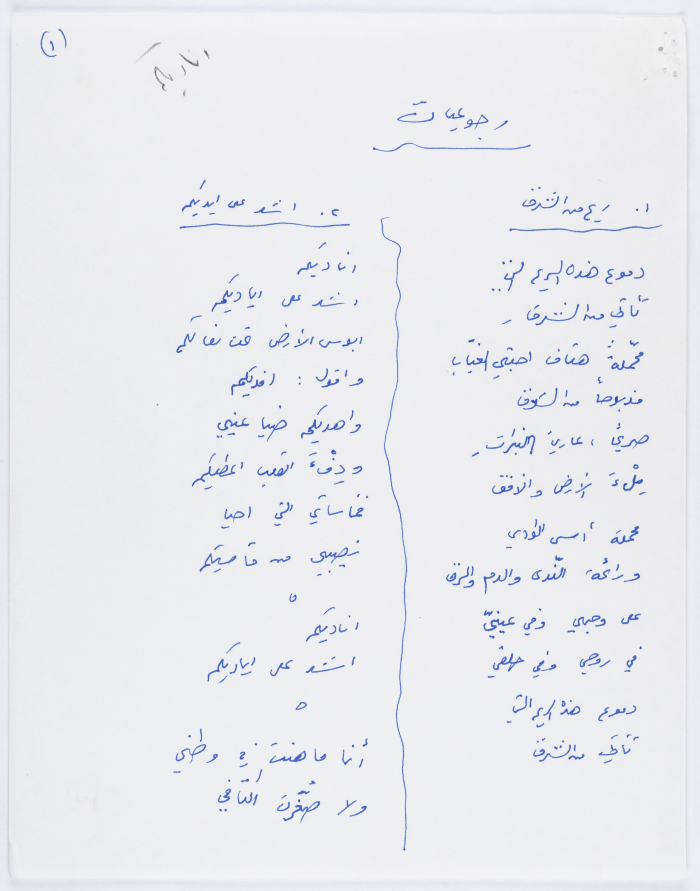 (١)
أناديكم
رجوعيات
١. ريح من الشرق
دموع هذه الريح التي
تأتي من الشرق
محمّلةً هتاف احبتي الغيّاب
مذبوحاً من الشوق
صريحاً، عاريَ النبرات
مِلْءَ الأرض والافق
محملة أسى الوادي
ورائحة النّدى والدم والرزق
على وجهي وفي عينيّ
في روحي وفي حلقي
دموع هذه الريح التي
تأتي من الشرق
٢. اشد على اياديكم
اناديكم
اشد على اياديكم
ابوس الأرض تحت نعالكم
واقول : افديكم
واهديكم ضيا عيني
ودِفْءَ القلب اعطيكم
فمأساتي التي احيا
نصيبي من مآسيكم
ه
اناديكم
اشد على اياديكم
ه
أنا ما هنت في وطني
ولا صَغَّرتُ اكتافي